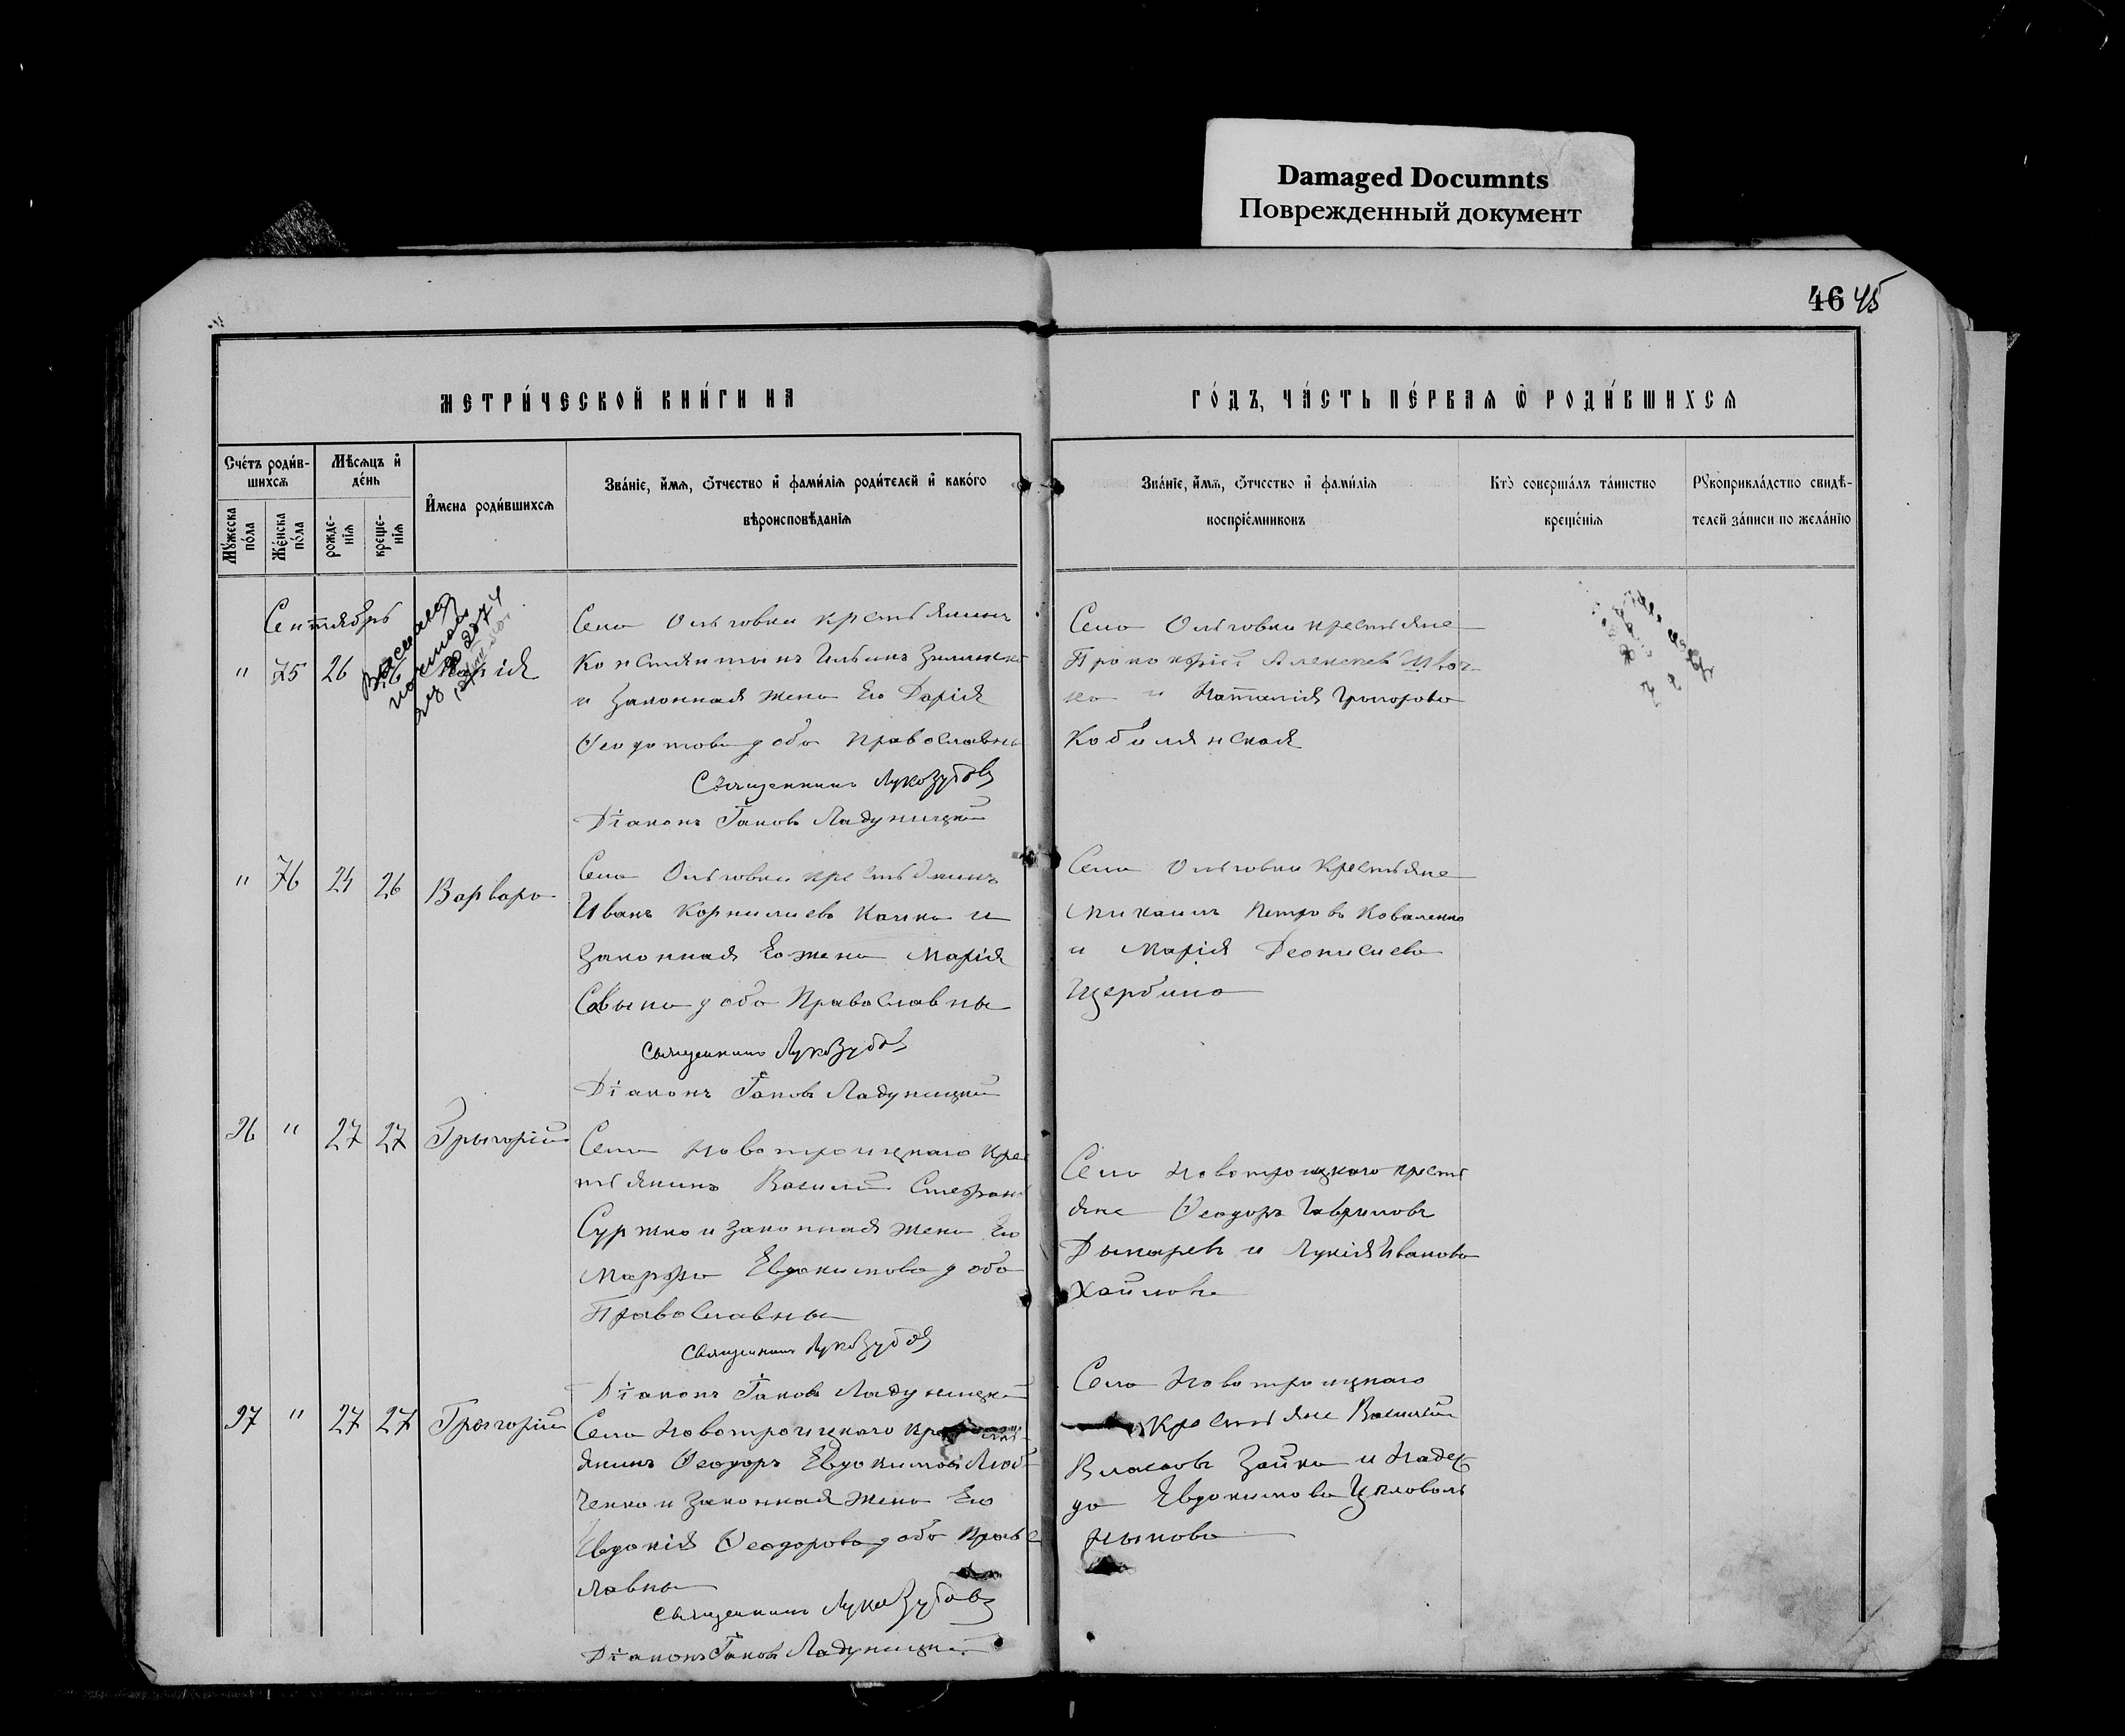 Damaged Documnts
Поврежденный документ
46 45
МЕТРИ́ЧЕСКОЙ КНИ́ГИ НА
ГО́ДЪ, ЧА́СТЬ ПЕ́РВАЯ Ѿ РОДИ́ВШИХСЯ
Сче́тъ роди́в-
шихсѧ
Мꙋ́жеска по́ла
Же́нска по́ла
Мѣ́сѧцъ и҆ де́нь
рожде-
нїѧ
креще-
нїѧ
И҆мена роди́вшихсѧ
Зва́нїе, и҆́мѧ, ѻ҆́тчество и҆ фами́лїѧ роди́телей и҆ како́го
вѣроисповѣ́данїѧ
Зва́нїе, и҆́мѧ, ѻ҆́тчество и҆ фами́лїѧ
воспрїе́мниковъ
Кто̀ соверша́лъ та́инство
креще́нїѧ
Рꙋкоприкла́дство свидѣ́-
телей за́писи по жела́нїю
Сентябрь
" 75 26 26 Марія
Села Ольговки крестьянинъ
Константинъ Ильинъ
и законная жена Его Дарія
Феодотова, оба Православны
Священникъ Лука Зубовъ
Діаконъ Іаковъ Ладуницкій
Села Ольговки крестьяне
Прокофій Алексеевъ
и Наталія Григорова
Кобилянская
" 76 24 26 Варвара
Села Ольговки крестьянинъ
Иванъ Корнилиевъ и
законная Его жена Марія
Савына, оба Православны
Священникъ Лука Зубовъ
Діаконъ Іаковъ Ладуницкій
Села Ольговки Крестьяне
Михаилъ Петровъ Коваленко
и Марія Деонисиева
Щербина
96 " 27 27 Грыгорій
Села Новотроицкаго Крес
тьянинъ Василій Стефанов
Суржко и законная жена Его
Марфа Евдокимова, оба
Православны
Священникъ Лука Зубовъ
Діаконъ Іаковъ Ладуницкій
Села Новотроицкаго кресть
яне Феодоръ Гавриловъ
и Лукія Иванова
97 " 27 27 Грыгорій
Села Новотроицкаго
янинъ Феодоръ Евдокимовъ
ченко и законная жена Его
Евдокія Феодорова, оба Правос
лавны
Священникъ Лука Зубовъ
Діаконъ Іаковъ Ладуницкій
Села Новотроицкаго
Крестьяне Василій
Власовъ Зайка и Надеж
да Евдокимова